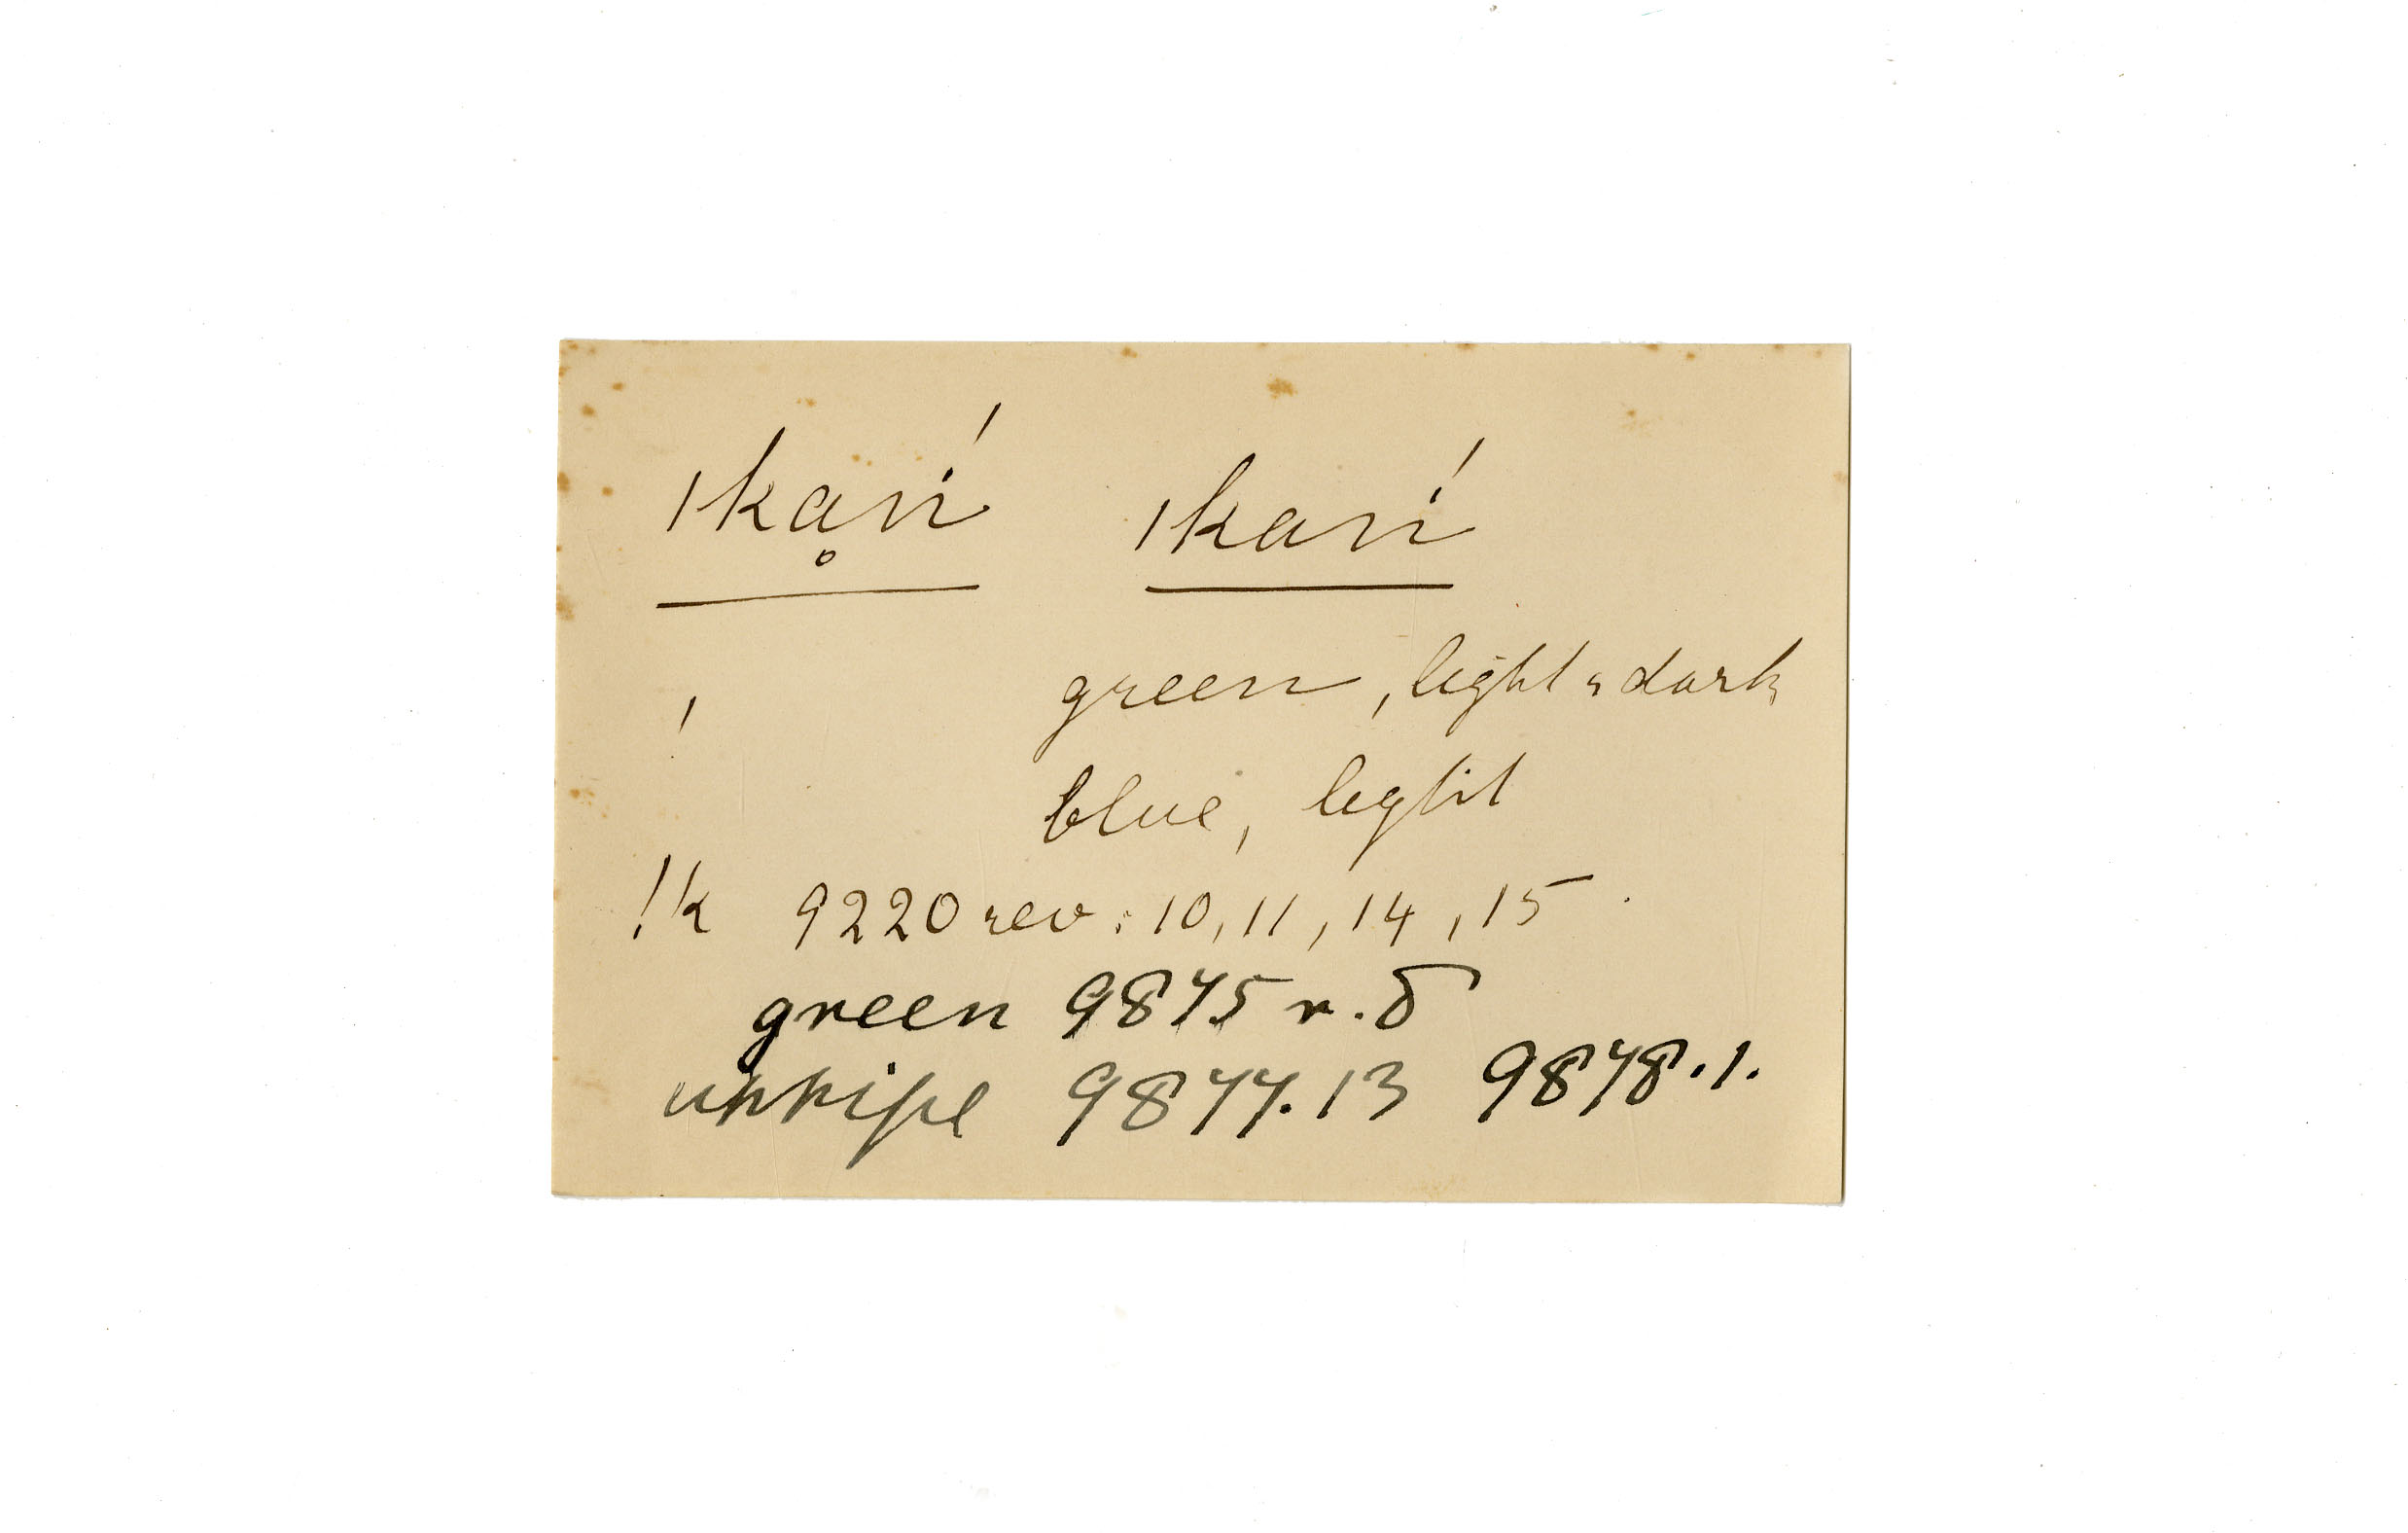 ıkḁń ıkań
green, light & dark
!
blue, light
!k 9220 rev: 10, 11, 14, 15.
green 9875 r. 5
unripe 9877. 13 9878. 1.